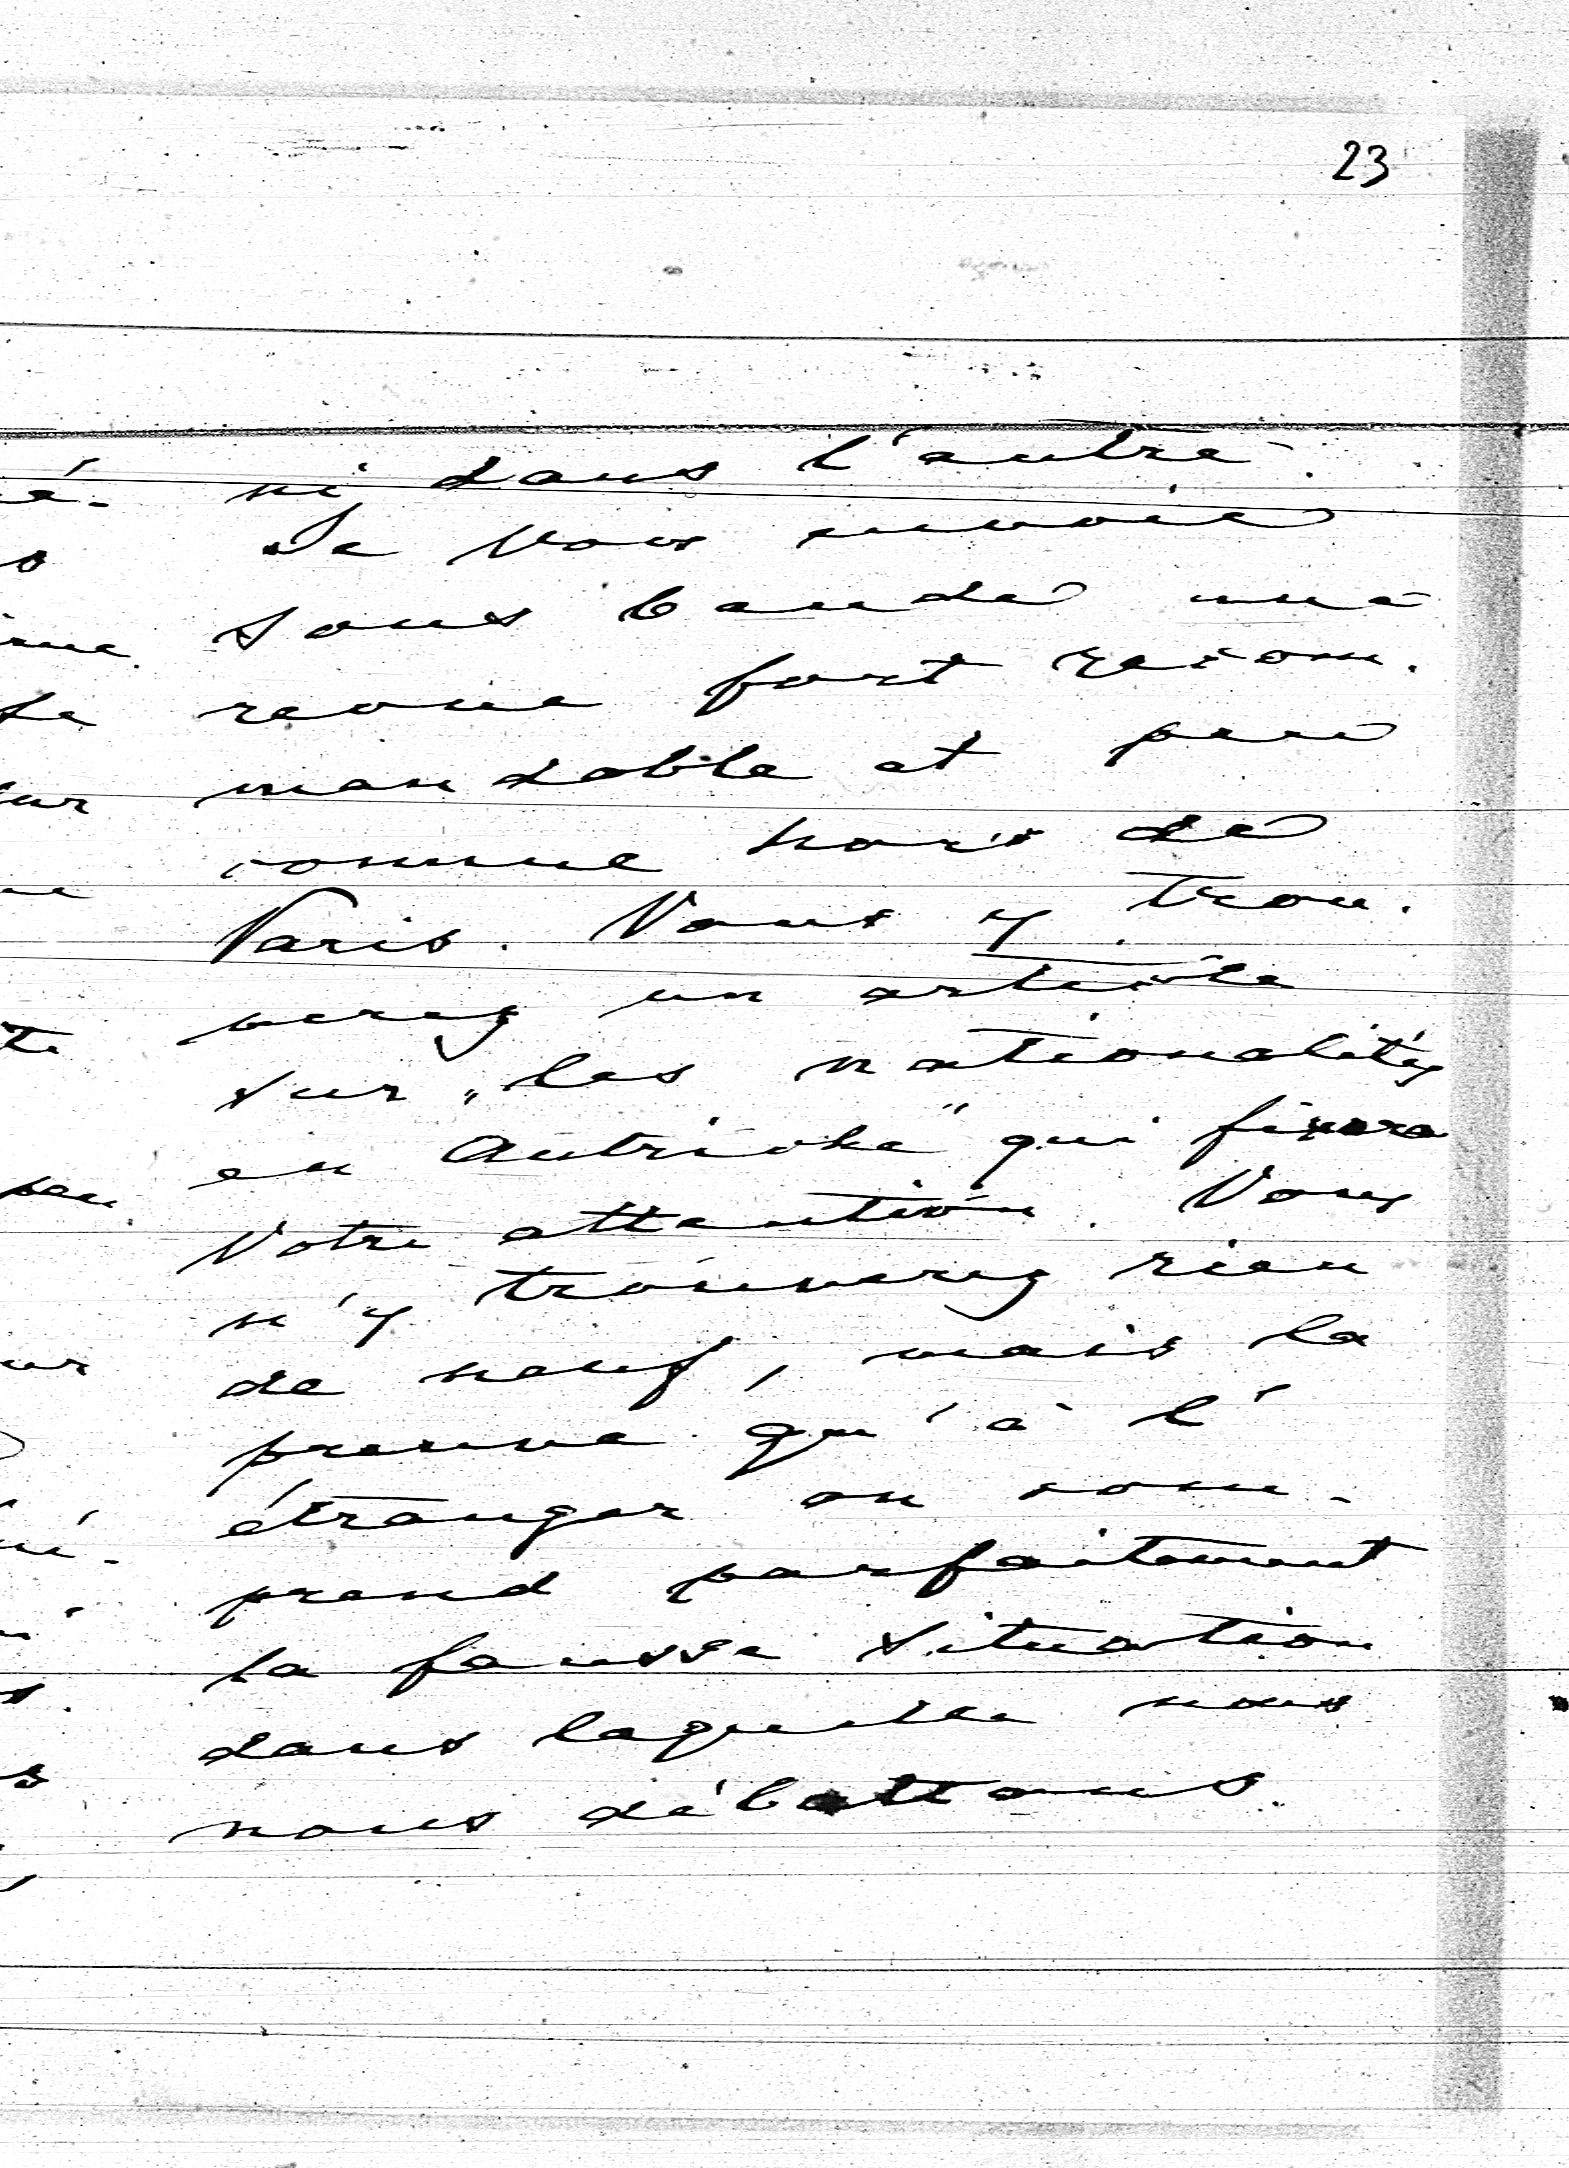 23
ni dans l'autre.
Je Vous envoie
sous bande une
revue fort recom-
mandable et peu
connue hors de
Paris. Vous y trou-
verez un article
sur „les nationalités
en Autriche" qui fixera
Votre attention. Vous
n'y trouverez rien
de neuf, mais la
preuve qu'à l'
étranger on com-
prend parfaitement
la fausse situation
dans laquelle nous
nous débattons.